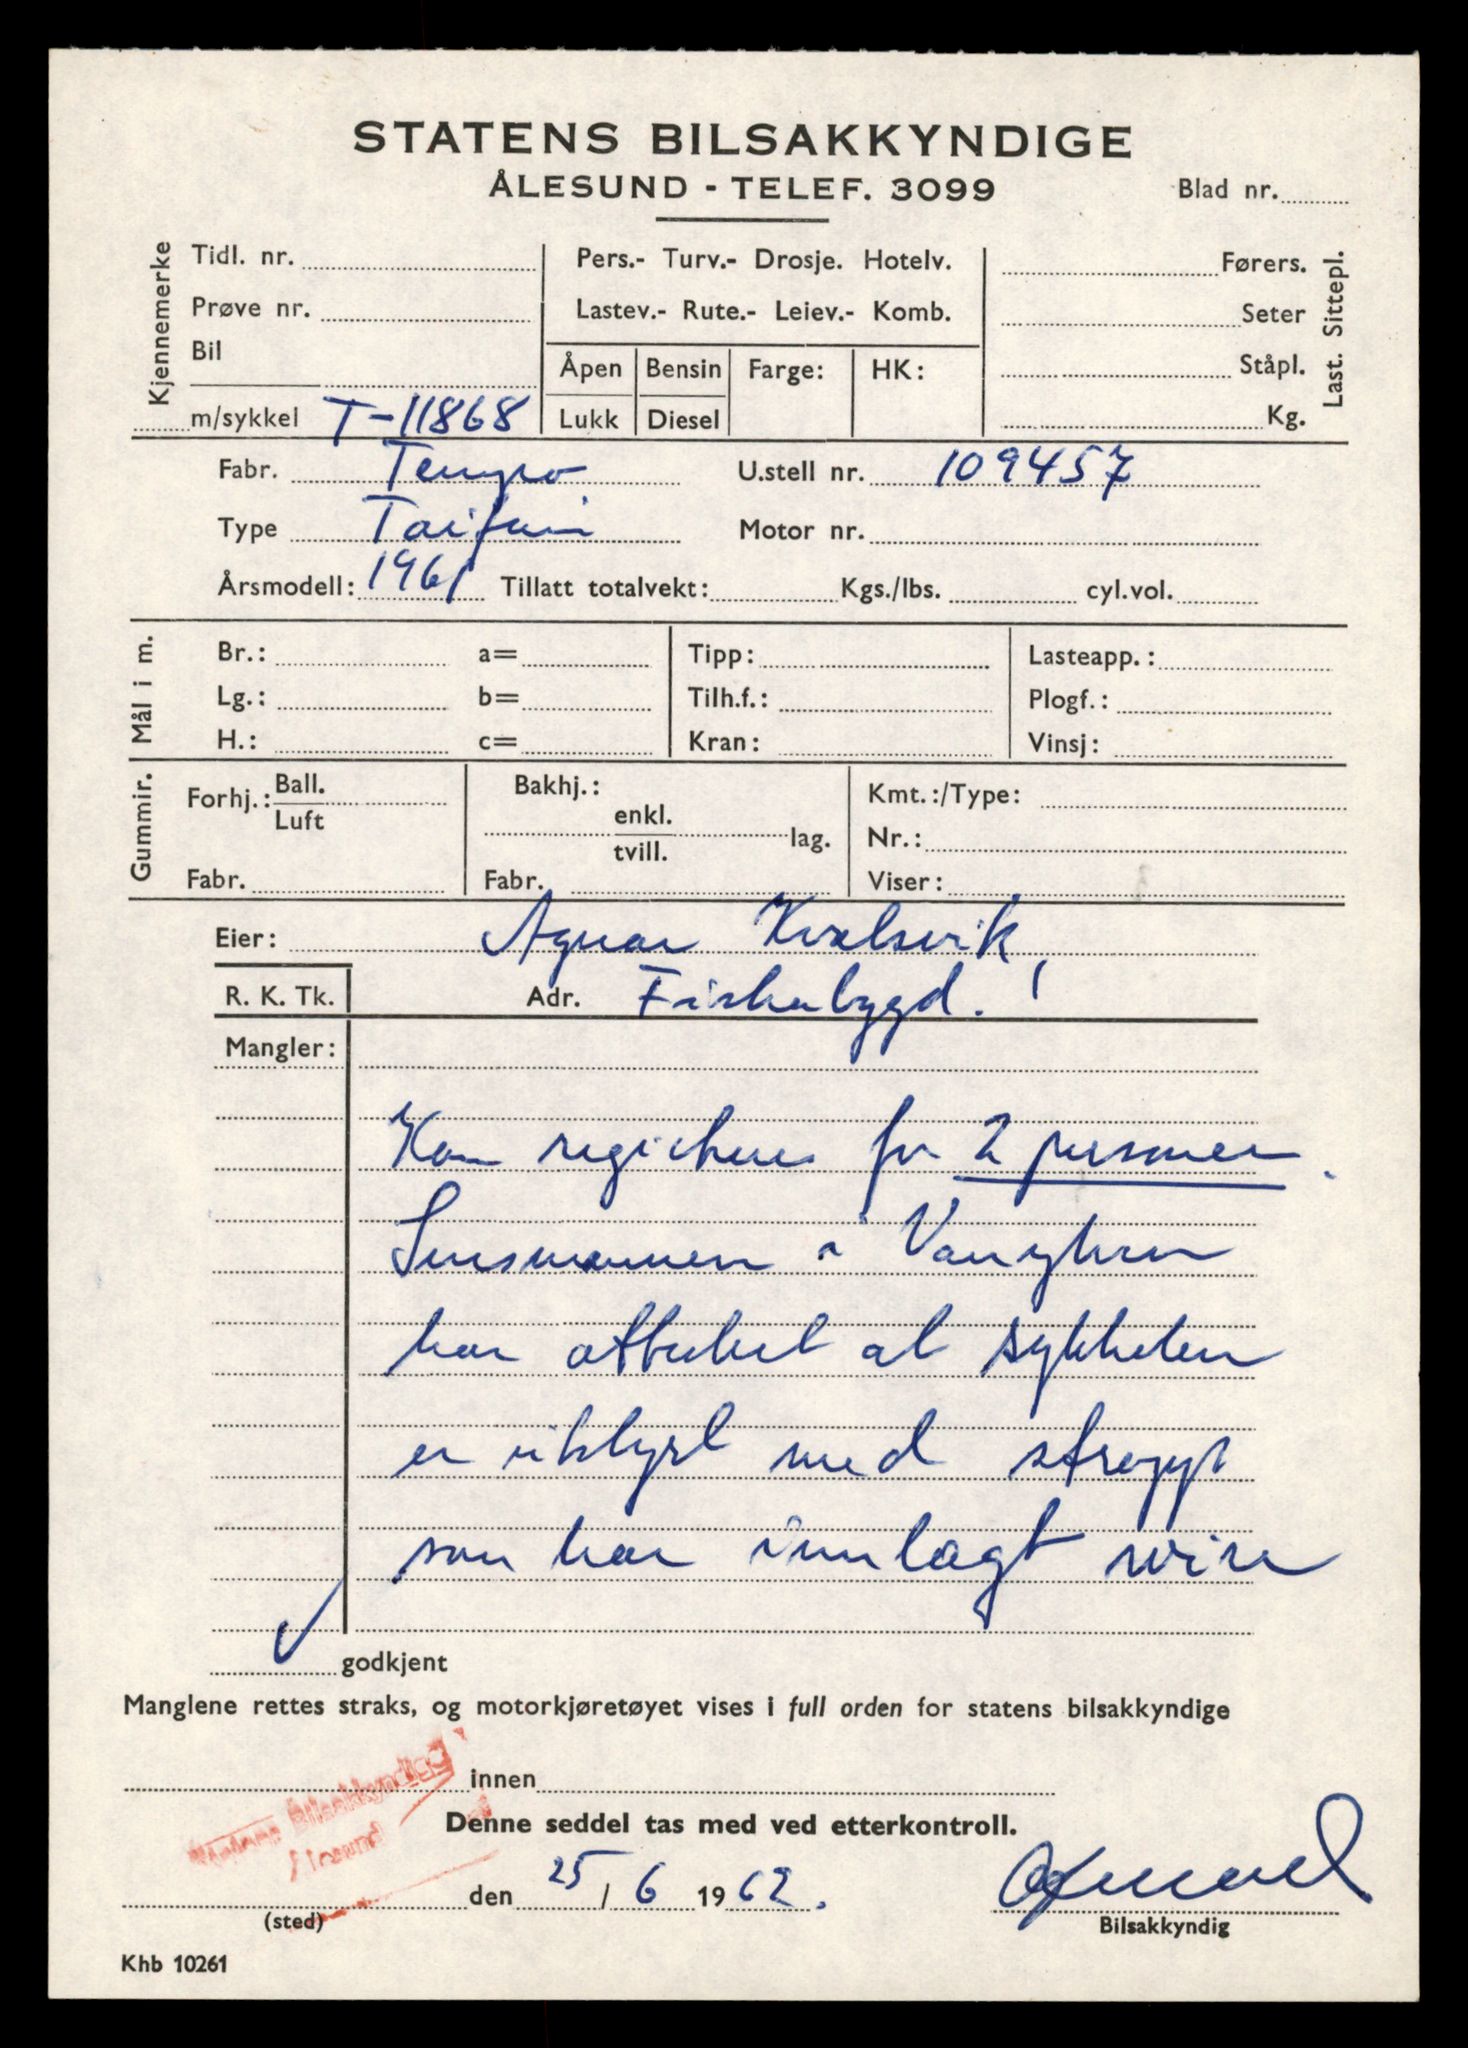 STATENS BILSAKKYNDIGE
ÅLESUND - TELEF. 3099
Blad nr.
Kjennemerke
Tidl. nr.
Prøve nr.
Bil
m/sykkel T-11868
Pers.- Turv.- Drosje. Hotelv.
Lastev.- Rute.- Leiev.- Komb.
Åpen
Lukk
Bensin
Diesel
Farge:
HK:
Førers.
Seter
Ståpl.
Kg.
Last. Sittepl.
Fabr. Tempo U.stell nr. 109457
Type Taifun Motor nr.
Årsmodell: 1961 Tillatt totalvekt: Kgs./lbs. cyl.vol.
Mål i m.
Br.: a= Tipp: Lasteapp.:
Lg.: b= Tilh.f.: Plogf.:
H.: c= Kran: Vinsj:
Gummir.
Forhj.: Ball.
Luft
Fabr.
Bakhj.:
enkl.
tvill. lag.
Fabr.
Kmt.:/Type:
Nr.:
Viser:
Eier: Agnar Kvalsvik,
R. K. Tk. Adr. Fiskabygd.
Mangler:
Kan registeres for 2 personer.
Lensmannen i Vanylven
har attestert at sykkelen
er utstyrt med stropp
som har innlagt wire
✓ godkjent
Manglene rettes straks, og motorkjøretøyet vises i full orden for statens bilsakkyndige
innen
Statens Bilsakkyndige
Ålesund
Denne seddel tas med ved etterkontroll.
den 25/6 1962.
(sted)
Bilsakkyndig
Khb 10261